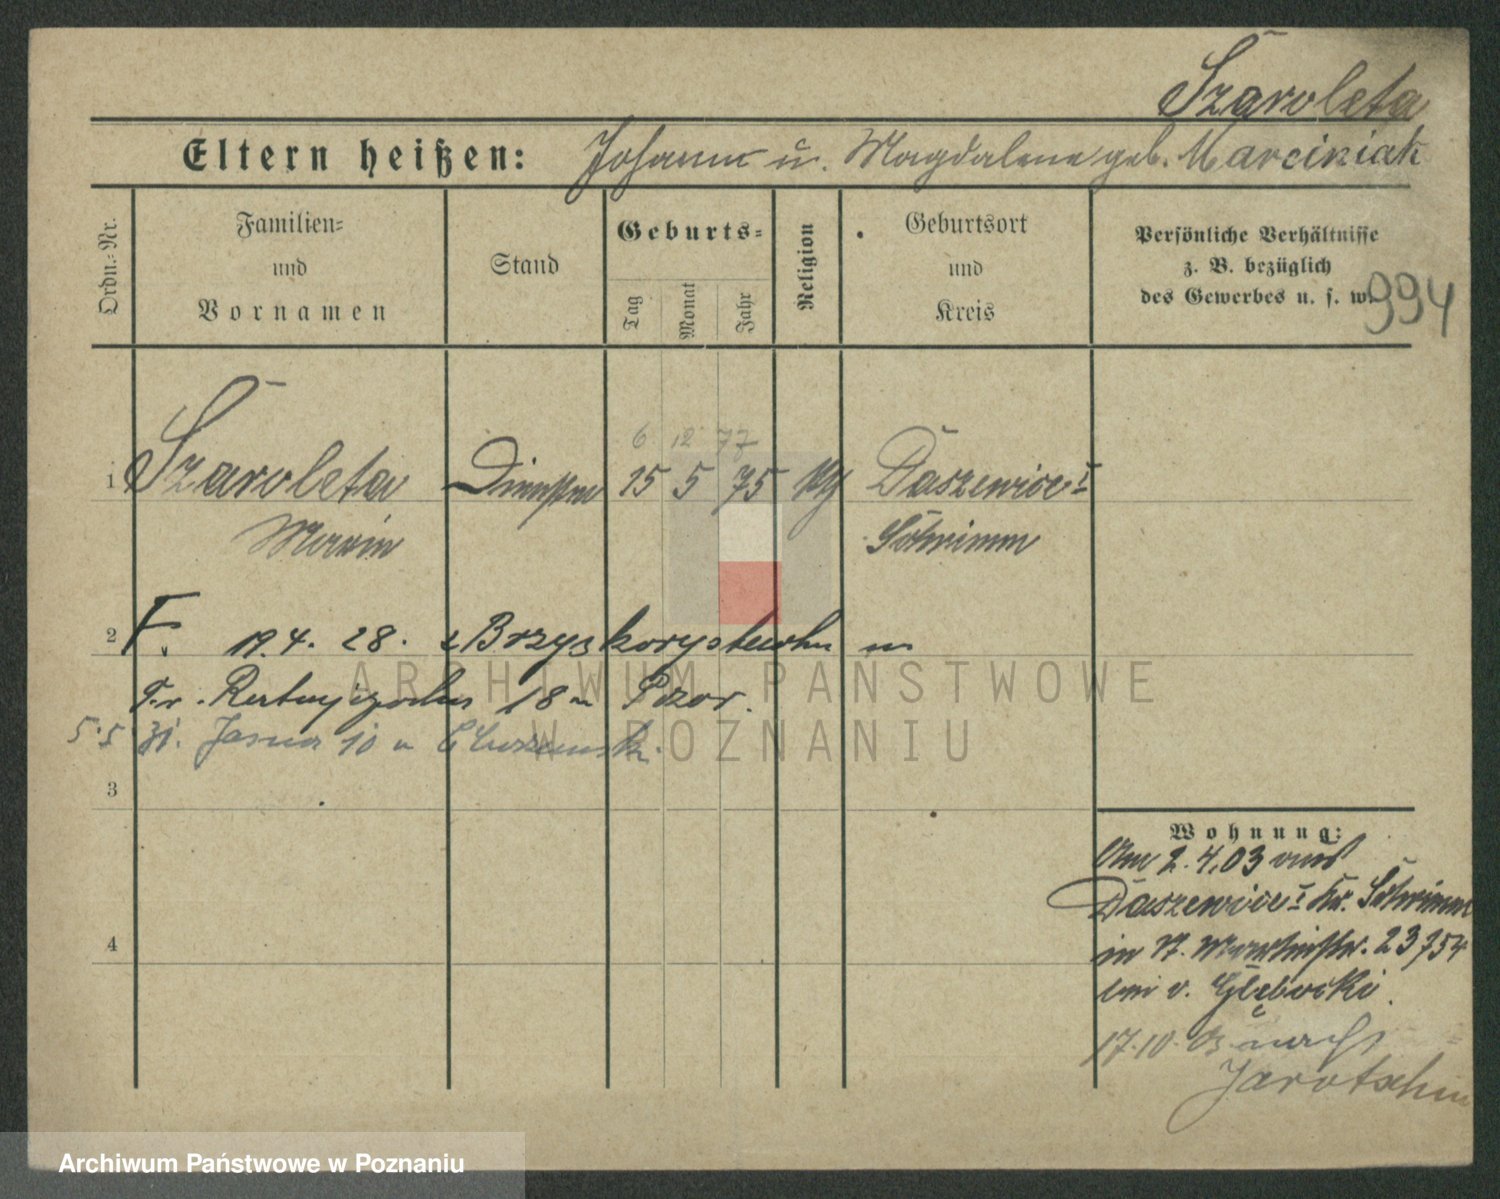 Szaroleta
Eltern heißen: Johann u. Magdalena geb. Marciniak
Ordn.-Nr.
Familien-
und
Vornamen
Stand
Geburts-
Tag
Monat
Jahr
Religion
Geburtsort
und
Kreis
Persönliche Verhältnisse
z. B. bezüglich
des Gewerbes u. s. w.
994
6 12 77
1 Szaroleta 15 5 75 Daszewice
Schrimm
2 F. 19. 4. 28.
18 Pozn.
5.5 31. 10
3
Wohnung:
Am 2.4.03 aus
Daszewice Kr. Schrimm
in St. Martinstr. 23
4
bei v. Głębocki
17.10.03 nach
Jarotschin
ARCHIWUM PAŃSTWOWE
W POZNANIU
Archiwum Państwowe w Poznaniu